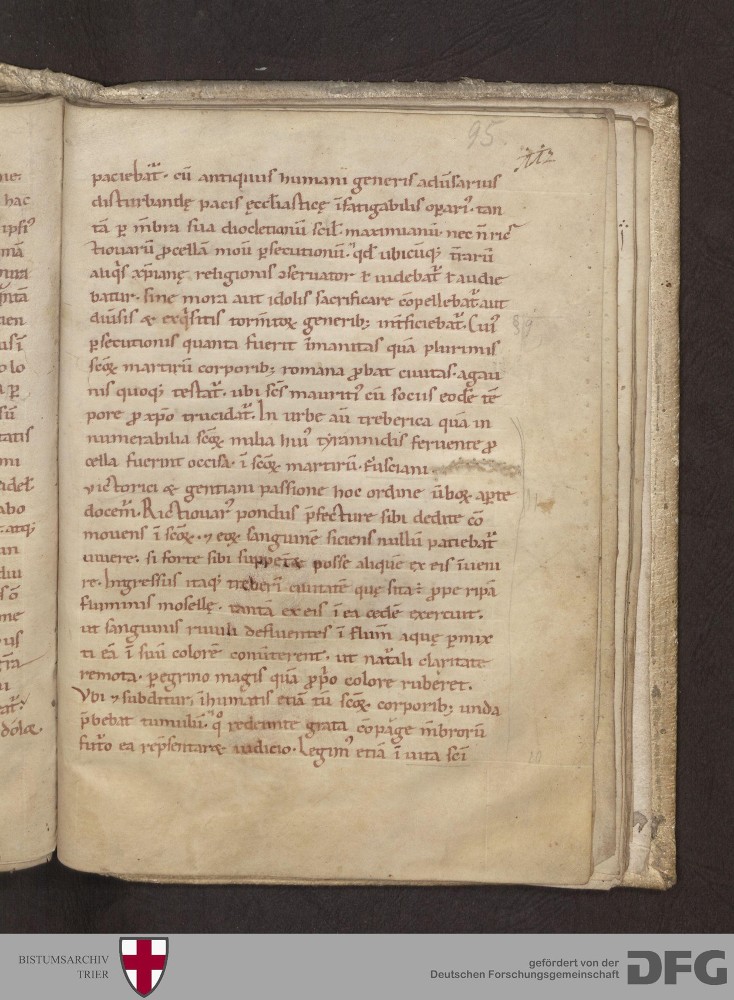 95.
112
paciebat᷑. cū antiquus humani generis aduˢarius
disturbandę pacis ęccl̄iasticę īfatigabilis oꝑariꝰ. tan
tā ꝑ m̄bra sua diocletianū scil. maximianū. nec n̄ ric
tiouarū ꝓcellā mouit ꝑsecutionū. qd ubicūq; t̄rarū
aliqͥs xp̄ianę religionis ꝯseruator ł uidebat᷑ ł audie
batur. sine mora aut idolis sacrificare cōpellebat᷑. aut
diuˢsis & exqͥsitis torm̄toꝝ generib; int̄ficiebat᷑. Cuiꝰ
ꝑsecutionis quanta fuerit īmanitas quā plurimis
sc̄oꝝ martirū corporib; romana ꝓbat ciuitas. agau
nis quoq; testat᷑. ubi sc̄s mauritiꝰ cū sociis eodē tē
pore ꝓ xp̄o trucidat᷑. In urbe aū treberica quā in
numerabilia sc̄oꝝ milia huiꝰ tyrannidis feruente ꝓ
cella fuerint occisa. ī sc̄oꝝ martirū. fusciani
victorici & gentiani passione hoc ordine ūboꝝ aꝑte
docem᷑. Rictiouarꝰ pondus p̄fecture sibi dedite cō
mouens ī sc̄oꝝ. & eoꝝ sanguinē siciens nullū patiebat᷑
uiuere. si forte sibi suppetae posse aliquē ex eis īueni
re. Ingressus itaq; treberī ciuitatē quę sita ÷ prope ripā
fluminis mosellę. tantā ex eis ī ea cedē exercuit.
ut sanguinis riuuli defluentes ī flum̄ aquę ꝑmix
ti eā ī suū colorē conuˢterent. ut nat᷑ali claritate
remota. ꝑegrino magis quā ꝓpͥo colore ruberet.
Vbi & subditur. īhumatis etiā tū sc̄oꝝ corporib; unda
p̄bebat tumulū. qͦ redeunte grata cōpage m̄brorū
futͦo ea rep̄sentaret iudicio. Legimꝰ etiā ī uita sc̄i
BISTUMSARCHIV
TRIER
gefördert von der
Deutschen Forschungsgemeinschaft
DFG